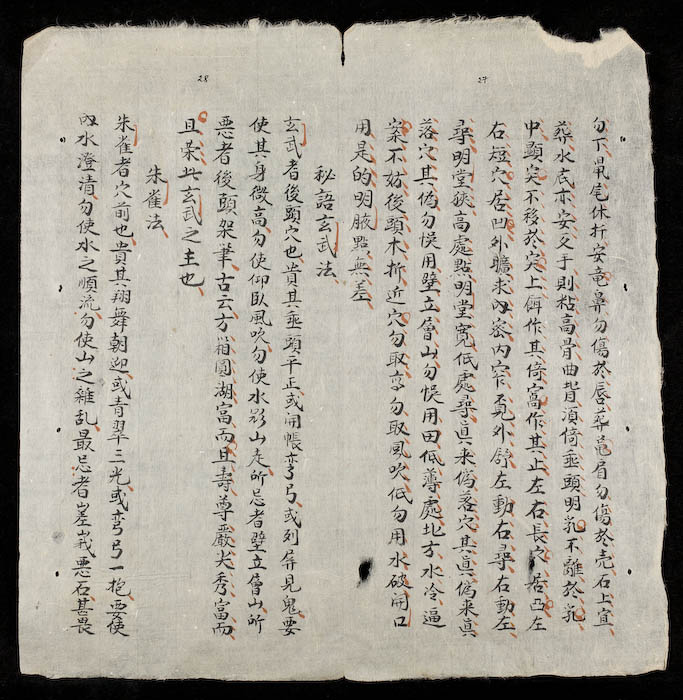 27
勿下鼠尾休折安竜鼻勿傷於唇葬篦眉勿傷於壳石上宜
葬水底亦安叉手則粘高骨曲背湏倚垂頭明乳不離於乳
中顕突不移於突上鉗作其倚窩作其止左右長穴居凸左
右短穴居凹外曠求内密内窄覔外舒左動右尋右動左
尋明堂狹高處點明堂寛低處尋真来偽落穴其真偽来真
落穴其偽勿悮用壁立層山勿悮用田低薄處北方水冷逼
案不妨後頭木折近穴勿取高勿取風吹低勿用水破開口
用是的明腋點無差
28
秘語玄武法
玄武者後頭穴也貴其垂頭平正或開帳弯弓或列屏見鬼要
使其身微高勿使仰臥風吹勿使水 山走所忌者壁立層山所
悪者後頭架筆古云方箱圓湖富而且壽尊嚴尖秀富而
且榮此玄武之主也
朱雀法
朱雀者穴前也貴其翔舞朝迎或青翠三光或弯弓一抱要使
内水澄清勿使水之順流勿使山之雜乱最忌者嵯峩悪石甚畏